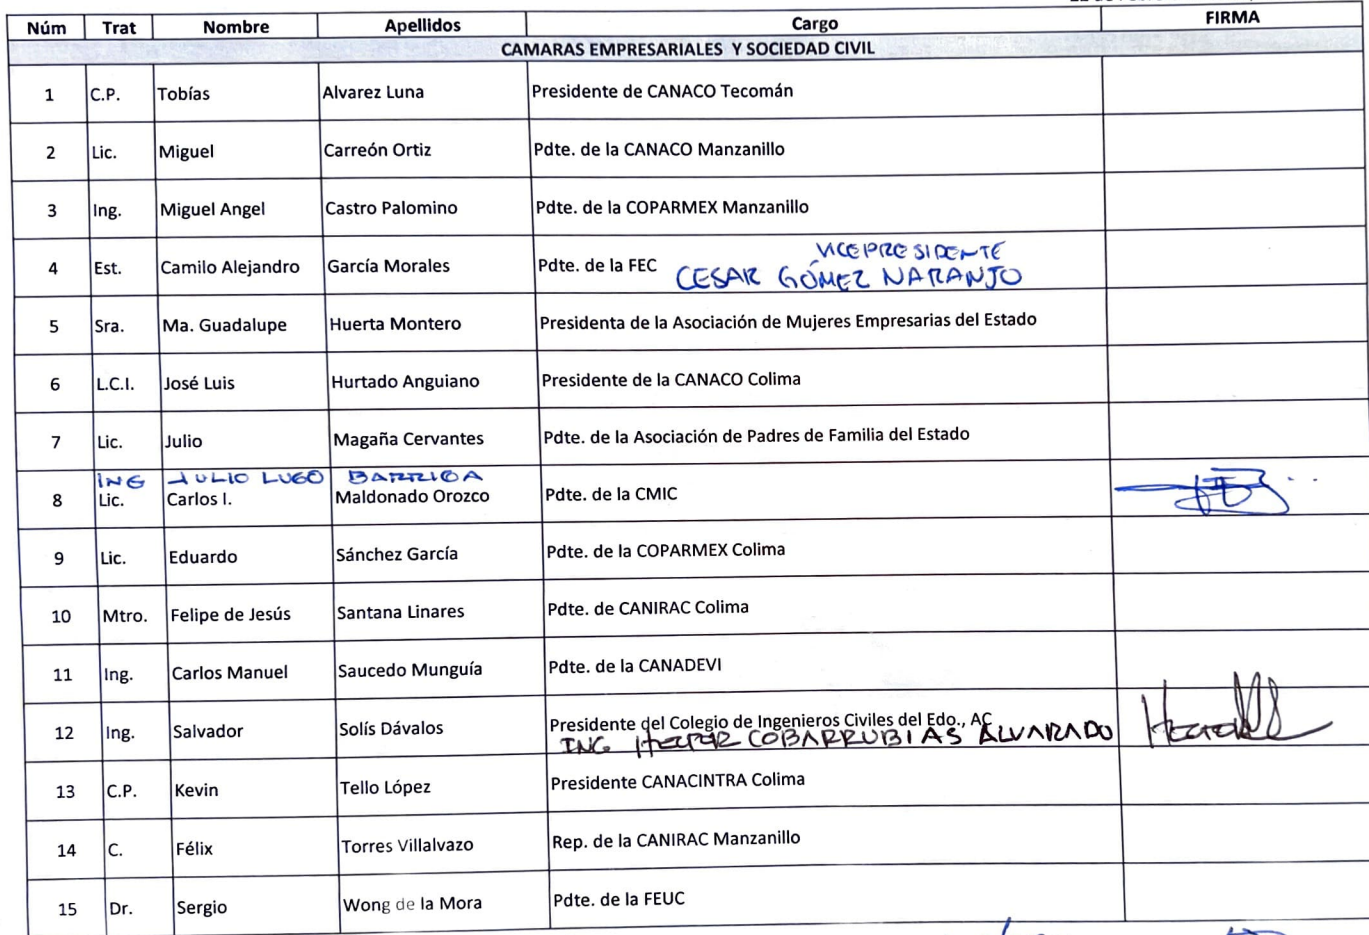 Núm Trat Nombre Apellidos Cargo FIRMA
CAMARAS EMPRESARIALES Y SOCIEDAD CIVIL
1 C.P. Tobías Alvarez Luna Presidente de CANACO Tecomán
2 Lic. Miguel Carreón Ortiz Pdte. de la CANACO Manzanillo
3 Ing. Miguel Angel Castro Palomino Pdte. de la COPARMEX Manzanillo
VICEPRESIDENTE
4 Est. Camilo Alejandro García Morales Pdte. de la FEC CESAR GÓMEZ NARANJO
5 Sra. Ma. Guadalupe Huerta Montero Presidenta de la Asociación de Mujeres Empresarias del Estado
6 L.C.I. José Luis Hurtado Anguiano Presidente de la CANACO Colima
7 Lic. Julio Magaña Cervantes Pdte. de la Asociación de Padres de Familia del Estado
ING JULIO LUGO BARRIGA
8 Lic. Carlos I. Maldonado Orozco Pdte. de la CMIC
9 Lic. Eduardo Sánchez García Pdte. de la COPARMEX Colima
10 Mtro. Felipe de Jesús Santana Linares Pdte. de CANIRAC Colima
11 Ing. Carlos Manuel Saucedo Munguía Pdte. de la CANADEVI
12 Ing. Salvador Solís Dávalos Presidente del Colegio de Ingenieros Civiles del Edo., AC
ING HECTOR COBARRUBIAS ALVARADO
13 C.P. Kevin Tello López Presidente CANACINTRA Colima
14 C. Félix Torres Villalvazo Rep. de la CANIRAC Manzanillo
15 Dr. Sergio Wong de la Mora Pdte. de la FEUC